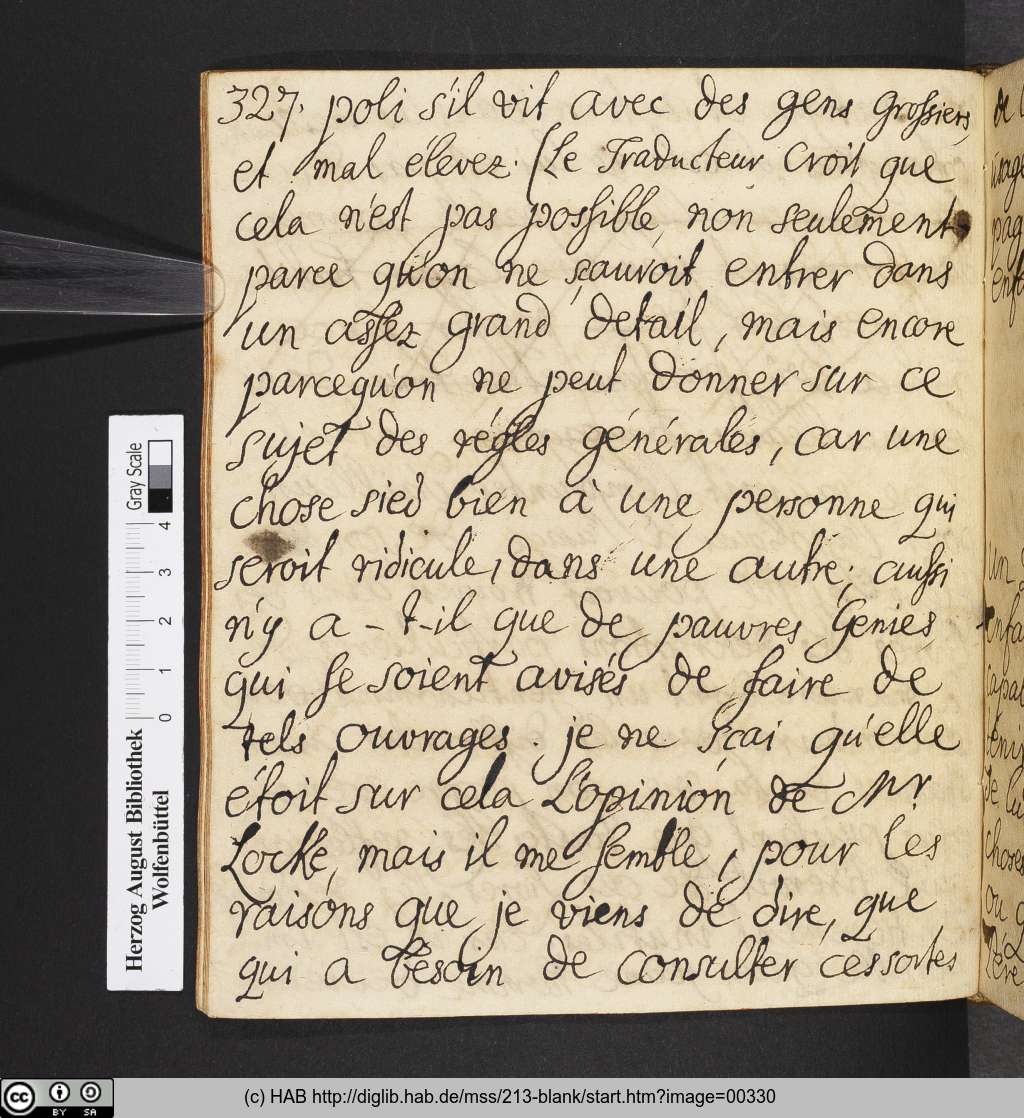 327. poli s'il vit avec des gens grossiers
et mal élevez. (Le Traducteur croit que
cela n'est pas possible, non seulement
parce qu'on ne sçauroit entrer dans
un assez grand detail, mais encore
parcequ'on ne peut donner sur ce
sujet des régles générales, car une
chose sied bien à une personne qui
seroit ridicule, dans une autre; aussi
n'y a-t-il que de pauvres Génies
qui se soient avisés de faire de
tels ouvrages. je ne sçai qu'elle
étoit sur cela L'opinión de Mr.
Locke, mais il me semble, pour les
raisons que je viens de dire, que
qui a besoin de consulter ces sortes
Gray Scale
0 1 2 3 4
Herzog August Bibliothek
Wolfenbüttel
cc BY SA
(c) HAB http://diglib.hab.de/mss/213-blank/start.htm?image=00330